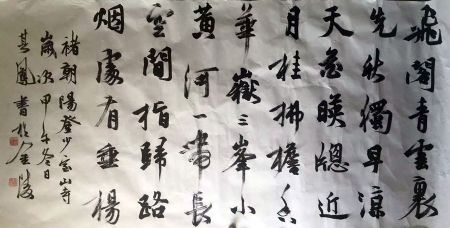 飛閣青雲裏
先秋獨早涼
天花映牕近
月桂拂檐香
華嶽三峯小
黃河一帶長
空間指歸路
烟處有垂楊
褚朝陽登少室山寺
歲次甲午冬日
其鳳書於金陵